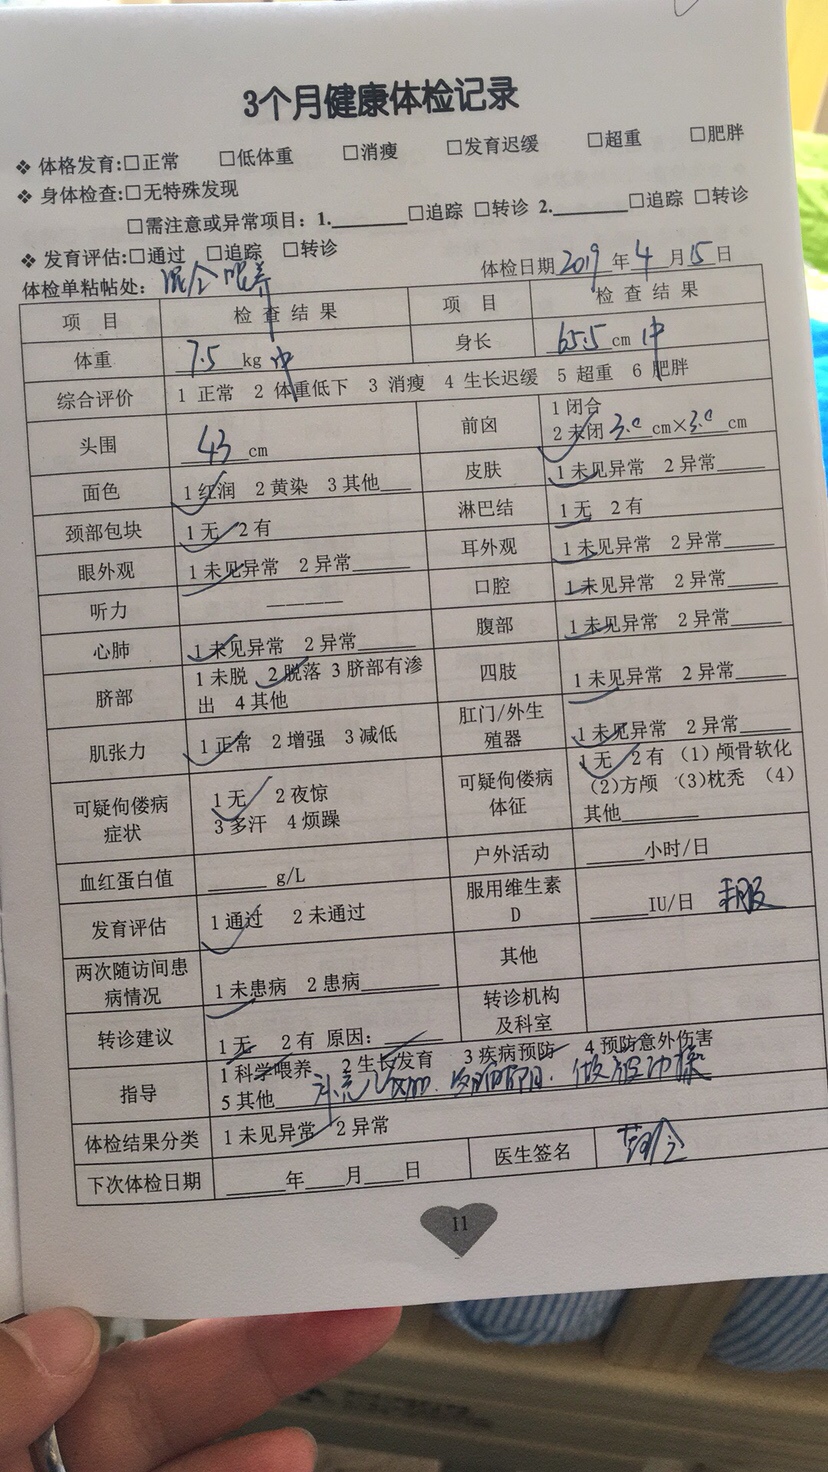 3个月健康体检记录
❖ 体格发育:□正常 □低体重 □消瘦 □发育迟缓 □超重 □肥胖
❖ 身体检查:□无特殊发现
□需注意或异常项目: 1.________□追踪 □转诊 2.________□追踪 □转诊
❖ 发育评估:□通过 □追踪 □转诊
体检日期2019年4月15日
体检单粘帖处: 混合喂养
项 目 检 查 结 果 项 目 检 查 结 果
体重 7.5 kg 中 身长 65.5 cm 中
综合评价 1 正常 2 体重低下 3 消瘦 4 生长迟缓 5 超重 6 肥胖
头围 43 cm 前囟 1 闭合
2 未闭 3.0 cm×3.0 cm
面色 1 红润 2 黄染 3 其他___ 皮肤 1 未见异常 2 异常_____
颈部包块 1 无 2 有 淋巴结 1 无 2 有
眼外观 1 未见异常 2 异常_____ 耳外观 1 未见异常 2 异常_____
听力 ———— 口腔 1 未见异常 2 异常_____
心肺 1 未见异常 2 异常_____ 腹部 1 未见异常 2 异常_____
脐部 1 未脱 2 脱落 3 脐部有渗
出 4 其他 四肢 1 未见异常 2 异常_____
肌张力 1 正常 2 增强 3 减低 肛门/外生
殖器 1 未见异常 2 异常_____
可疑佝偻病
症状 1 无 2 夜惊
3 多汗 4 烦躁 可疑佝偻病
体征 1 无 2 有 (1)颅骨软化
(2)方颅 (3)枕秃 (4)
其他________
血红蛋白值 ______ g/L 户外活动 ______小时/日
发育评估 1 通过 2 未通过 服用维生素
D ______IU/日 未服
两次随访间患
病情况 1 未患病 2 患病________ 其他
转诊建议 1 无 2 有 原因: ______ 转诊机构
及科室
指导 1 科学喂养 2 生长发育 3 疾病预防 4 预防意外伤害
5 其他 补充 做被动操
体检结果分类 1 未见异常 2 异常
下次体检日期 ______年____月____日 医生签名
11